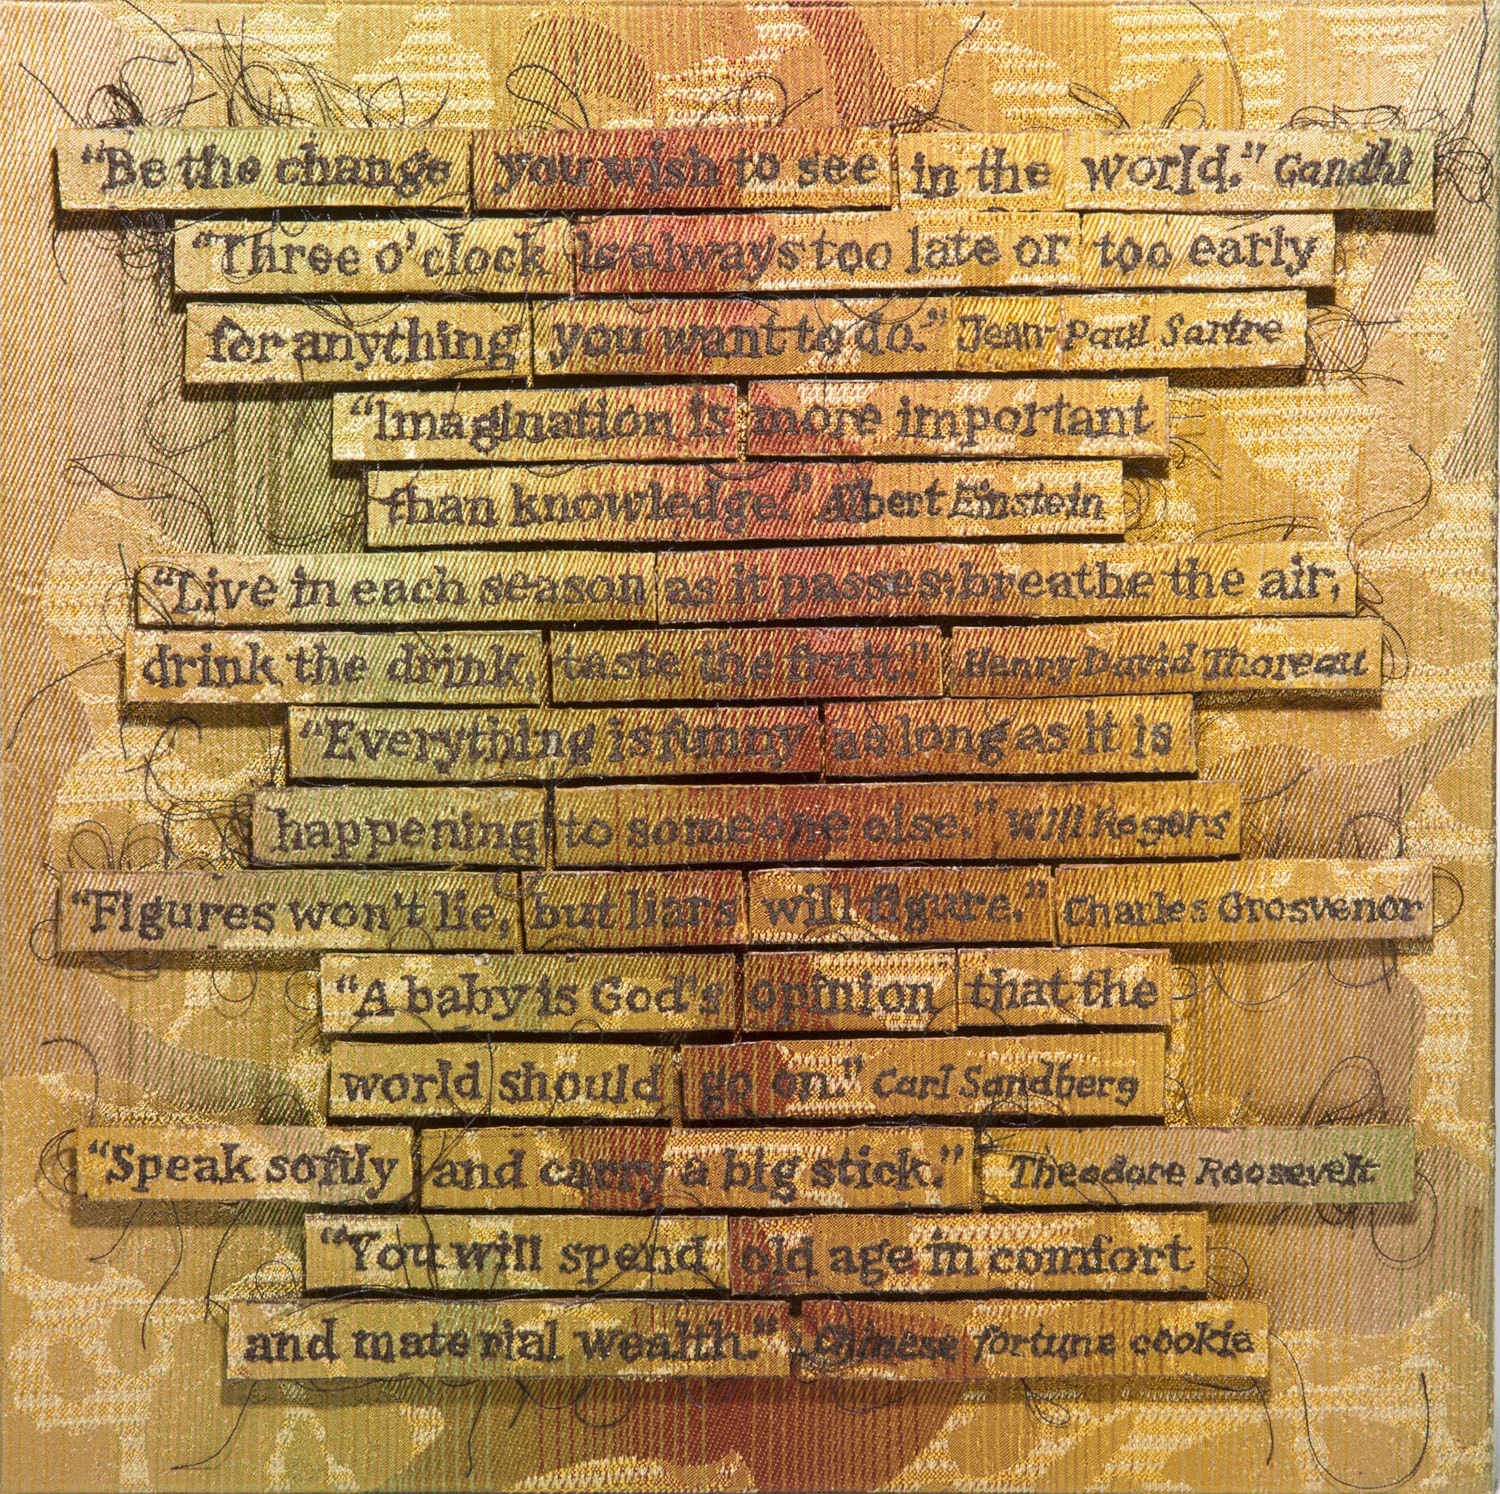 "Be the change you wish to see in the world." Gandhi
"Three o'clock is always too late or too early
for anything you want to do." Jean-Paul Sartre
"Imagination is more important
than knowledge." Albert Einstein
"Live in each season as it passes; breathe the air,
drink the drink, taste the fruit." Henry David Thoreau
"Everything is funny as long as it is
happening to someone else." Will Rogers
"Figures won't lie, but liars will figure." Charles Grosvenor
"A baby is God's opinion that the
world should go on." Carl Sandberg
"Speak softly and carry a big stick." Theodore Roosevelt
"You will spend old age in comfort
and material wealth." Chinese fortune cookie